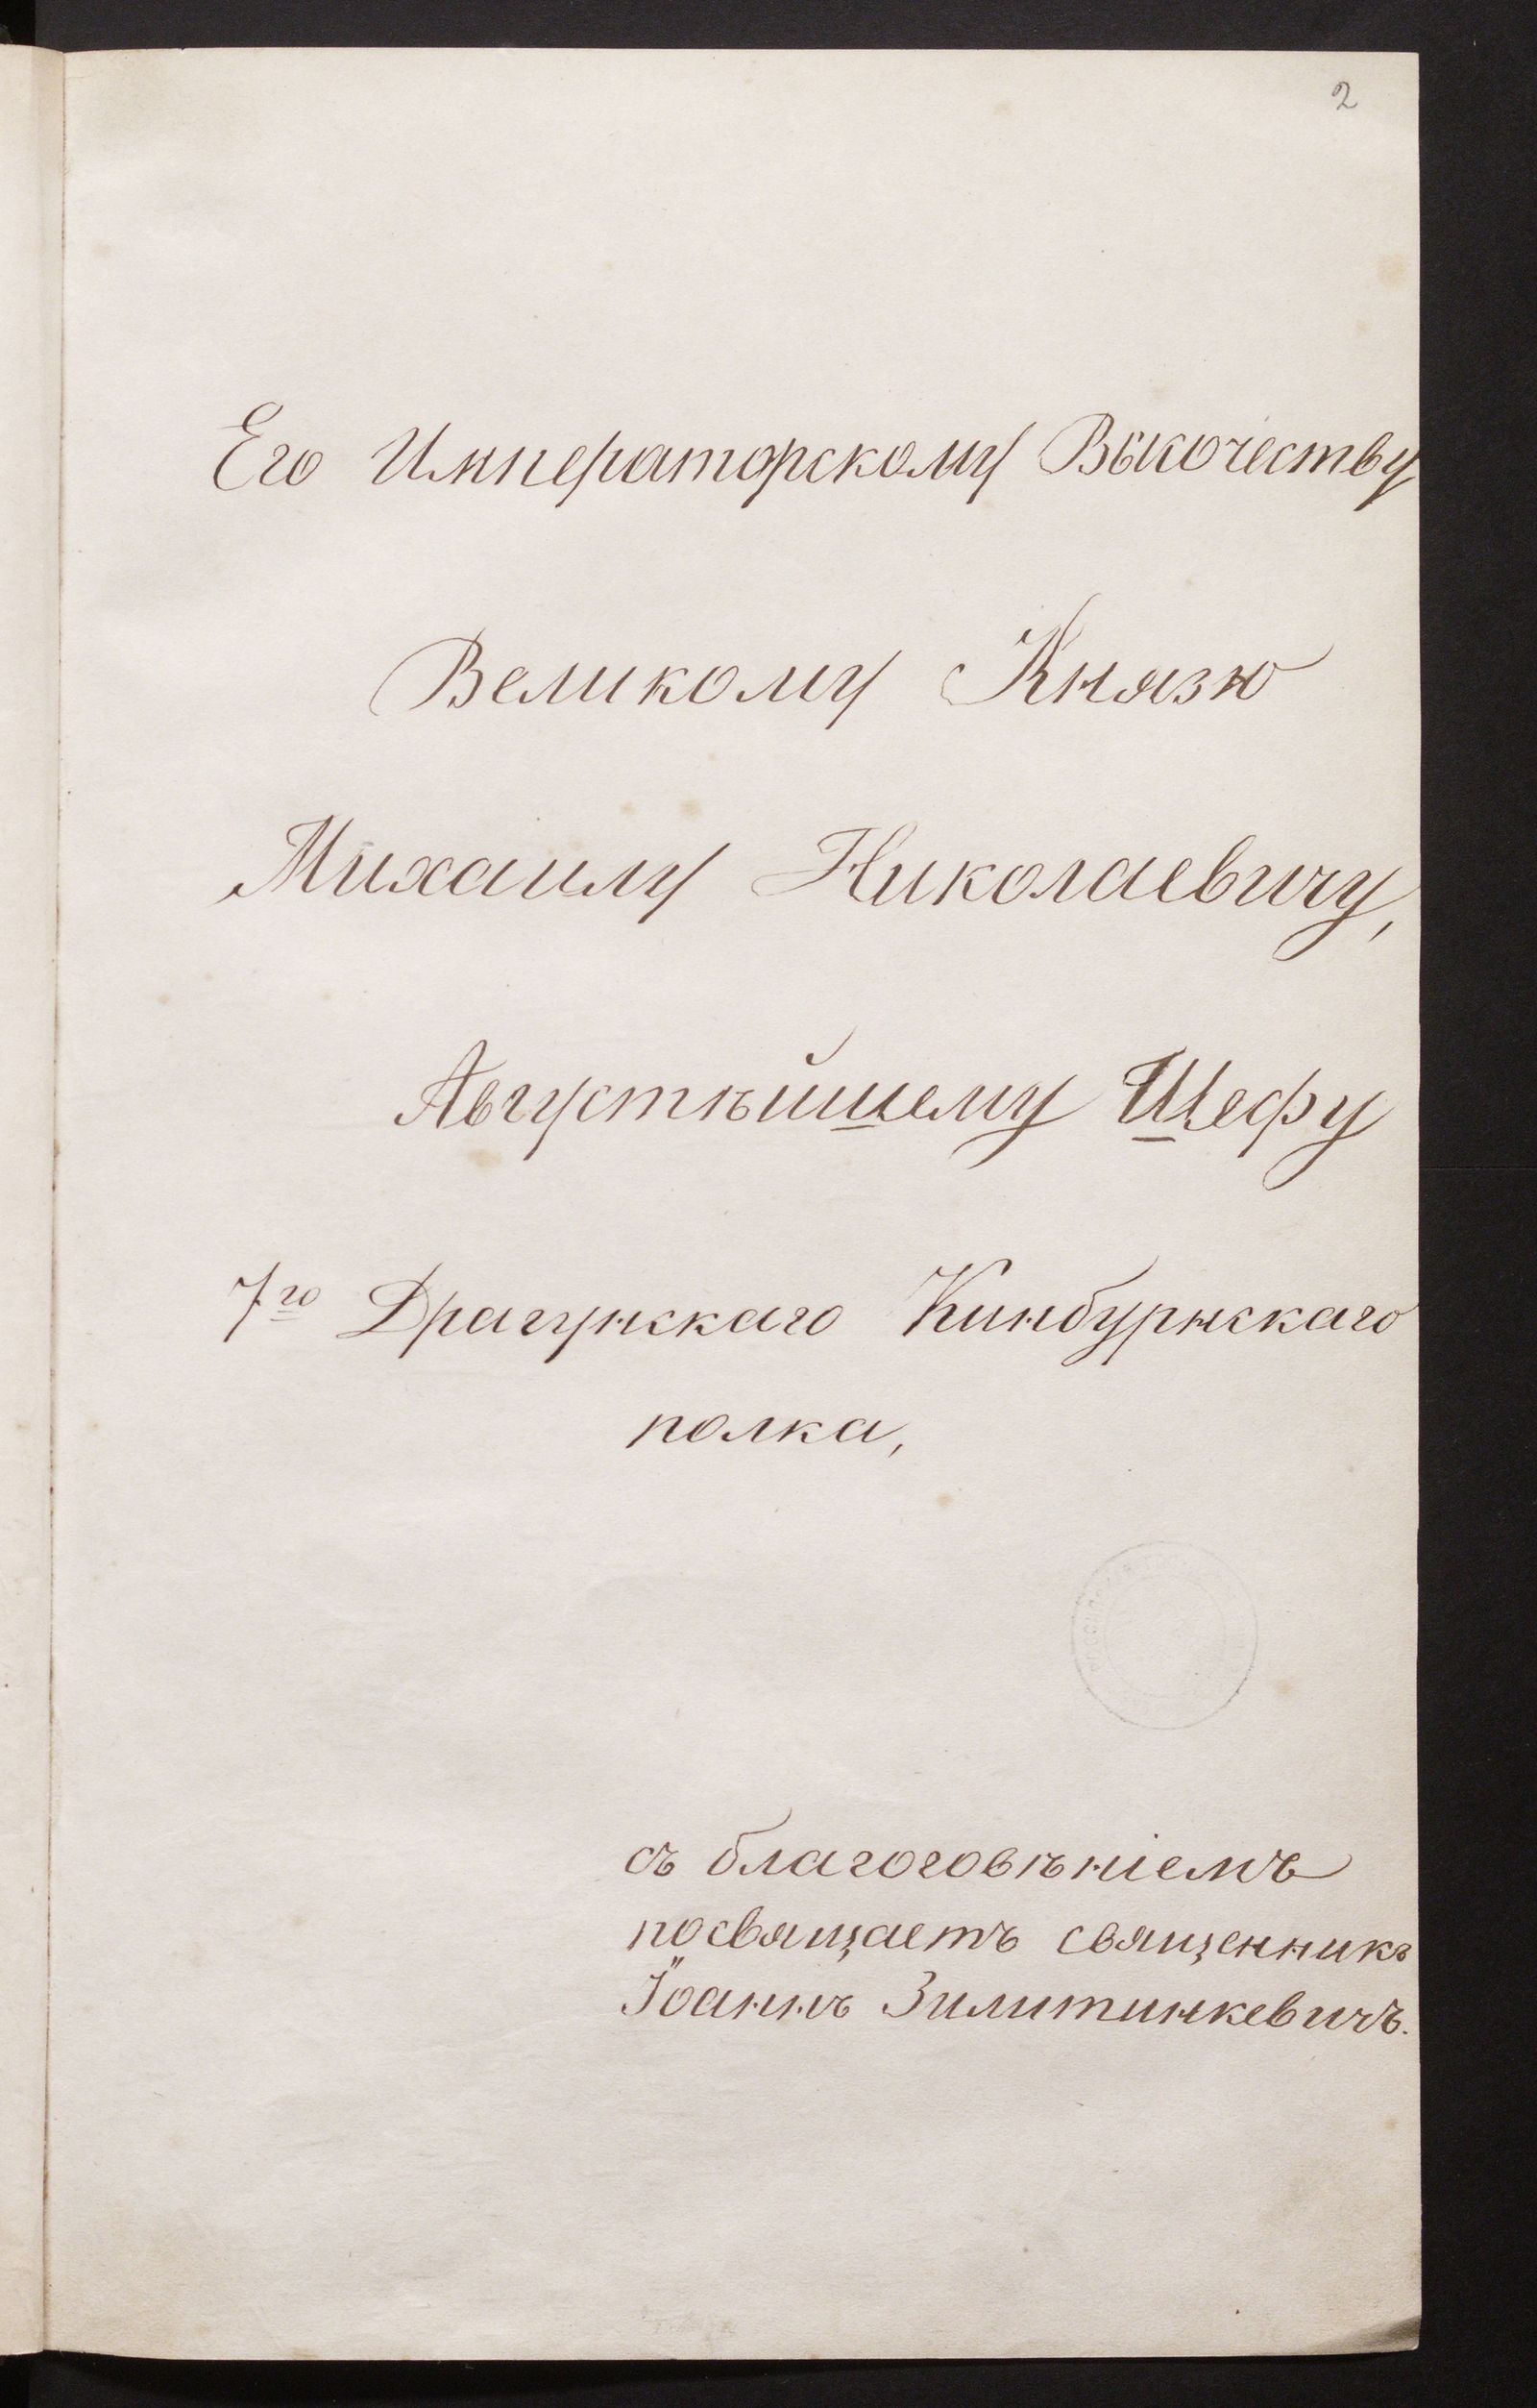 2
Его Императорскому Высочеству
Великому Князю
Михаилу Николаевичу,
Августѣйшему Шефу
7го Драгунскаго Кинбурнскаго
полка,
съ благоговѣніемъ
посвящаетъ священникъ
Іоаннъ Зилитинкевичъ.